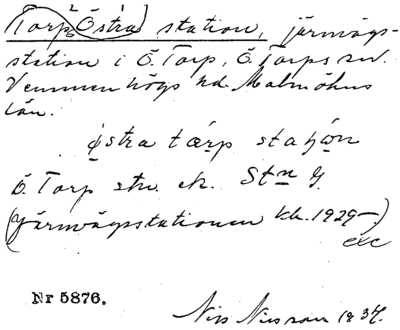 Torp, Östra station, järnvägs-
station i Ö. Torp, Ö. Torps sn.
Vemmenhögs hd. Malmöhus
län.
östra tårp
Ö. Torp stn. ek. Stn g
(järnvägsstationen kh. 1929-)
etc
Nr 5876.
Nils Nilsson 1934.